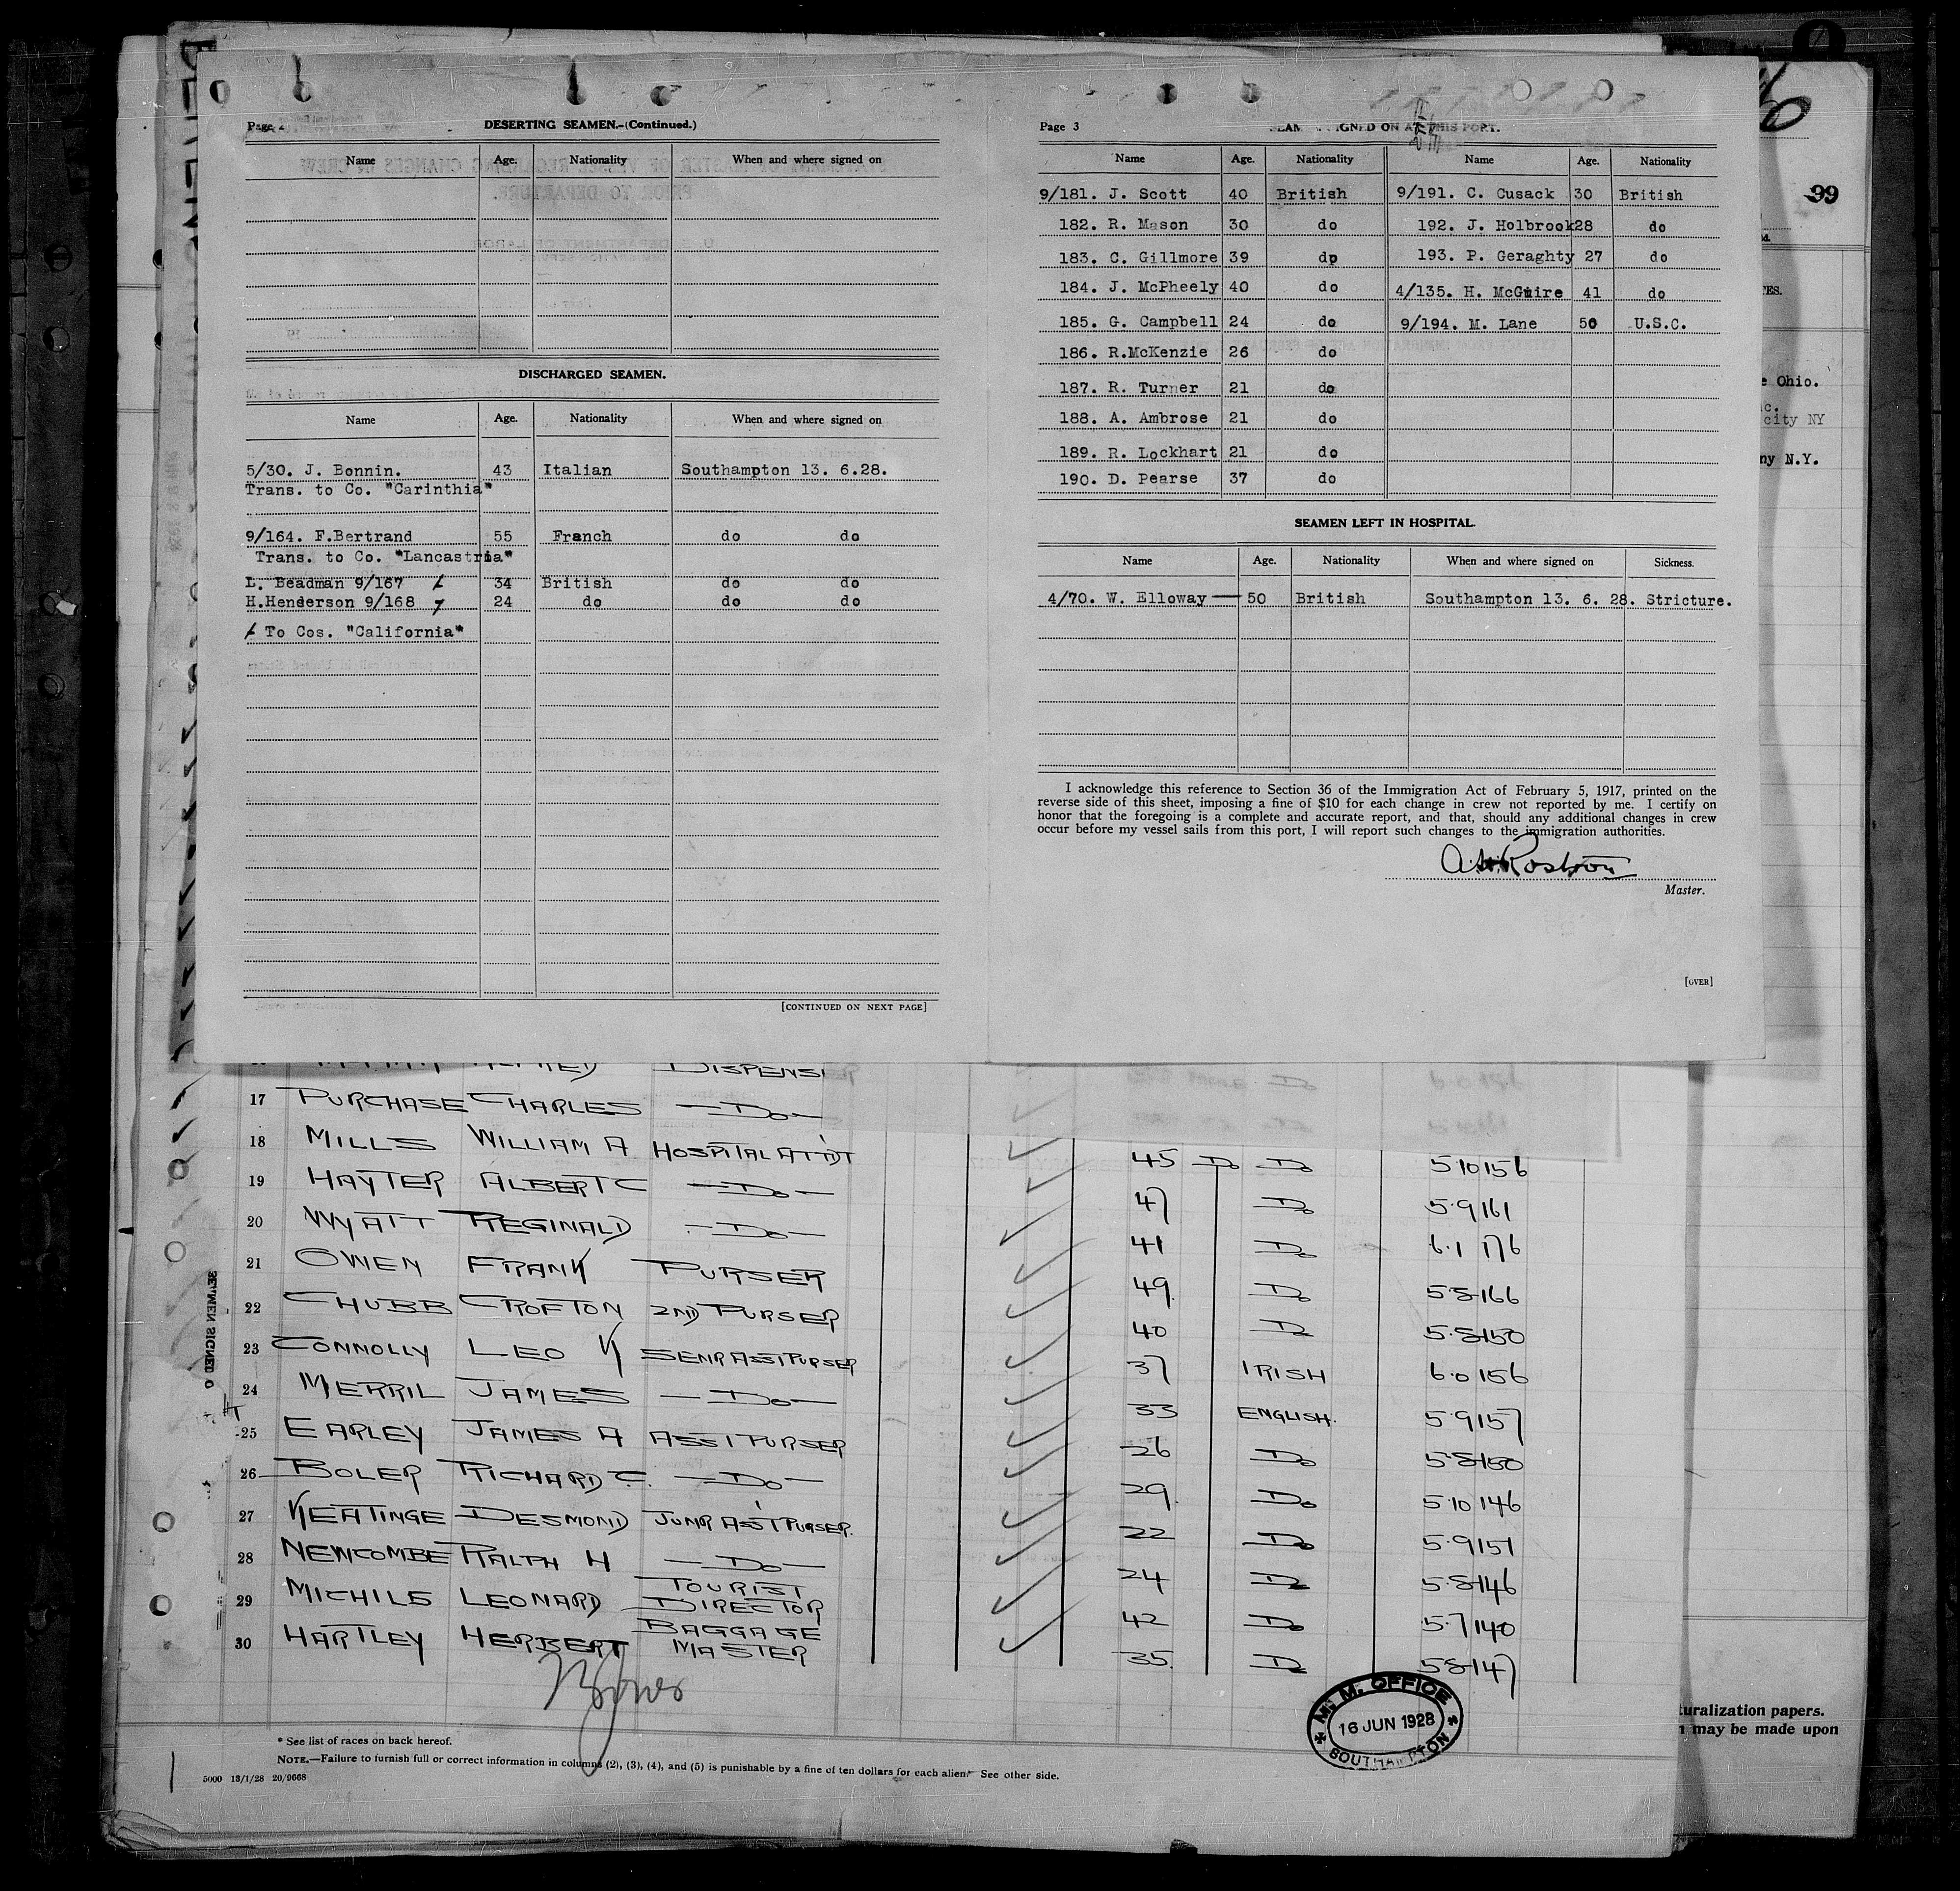 DESERTING SEAMEN.-(Continued.)
Name Age. Nationality When and where signed on
DISCHARGED SEAMEN.
Name Age. Nationality When and where signed on
5/30. J. Bonnin. 43 Italian Southampton 13. 6.28.
Trans. to Co. "Carinthia"
9/164. F.Bertrand 55 Franch do do
Trans. to Co. "Lancastria"
L. Beadman 9/167 34 British do do
H.Henderson 9/168 24 do do do
To Cos. "California"
[CONTINUED ON NEXT PAGE]
Page 3
THIS PORT.
Name Age. Nationality Name Age. Nationality
9/181. J. Scott 40 British 9/191. C. Cusack 30 British
182. R. Mason 30 do 192. J. Holbrook 28 do
183. C. Gillmore 39 do 193. P. Geraghty 27 do
184. J. McPheely 40 do 4/135. H. McGuire 41 do
185. G. Campbell 24 do 9/194. M. Lane 50 U.S.C.
186. R.McKenzie 26 do
187. R. Turner 21 do
188. A. Ambrose 21 do
189. R. Lockhart 21 do
190. D. Pearse 37 do
SEAMEN LEFT IN HOSPITAL.
Name Age. Nationality When and where signed on Sickness.
4/70. W. Elloway 50 British Southampton 13. 6. 28. Stricture.
I acknowledge this reference to Section 36 of the Immigration Act of February 5, 1917, printed on the
reverse side of this sheet, imposing a fine of $10 for each change in crew not reported by me. I certify on
honor that the foregoing is a complete and accurate report, and that, should any additional changes in crew
occur before my vessel sails from this port, I will report such changes to the immigration authorities.
A.H. Rostron
Master.
[OVER]
99
Ohio.
city NY
N.Y.
DISPENSER
17 PURCHASE CHARLES —Do—
18 MILLS WILLIAM A HOSPITAL ATTDT 45 Do Do 5·10 156
19 HAYTER ALBERT C —Do— 47 Do 5·9 161
20 WYATT REGINALD —Do— 41 Do 6·1 176
21 OWEN FRANK PURSER 49. Do 5·8 166
22 CHUBB CROFTON 2ND PURSER 40 Do 5·8 150
23 CONNOLLY LEO K SENR ASST PURSER 37 IRISH 6·0 156
24 MERRIL JAMES —Do— 33 ENGLISH. 5·9 157
25 EARLEY JAMES A ASST PURSER 26 Do 5·8 150
26 BOLER RICHARD C. —Do— 29. Do 5·10 146
27 KEATINGE DESMOND JUNR ASST PURSER. 22 Do 5·9 151
28 NEWCOMBE RALPH H —Do— 24 Do 5·8 146
29 MICHILS LEONARD TOURIST DIRECTOR 42 Do 5·7 140
30 HARTLEY HERBERT BAGGAGE MASTER 35. Do 5·8 147
SEAMEN SIGNED O
M. M. OFFICE
16 JUN 1928
SOUTHAMPTON
* See list of races on back hereof.
NOTE.—Failure to furnish full or correct information in columns (2), (3), (4), and (5) is punishable by a fine of ten dollars for each alien. See other side.
5000 13/1/28 20/9668
naturalization papers.
may be made upon